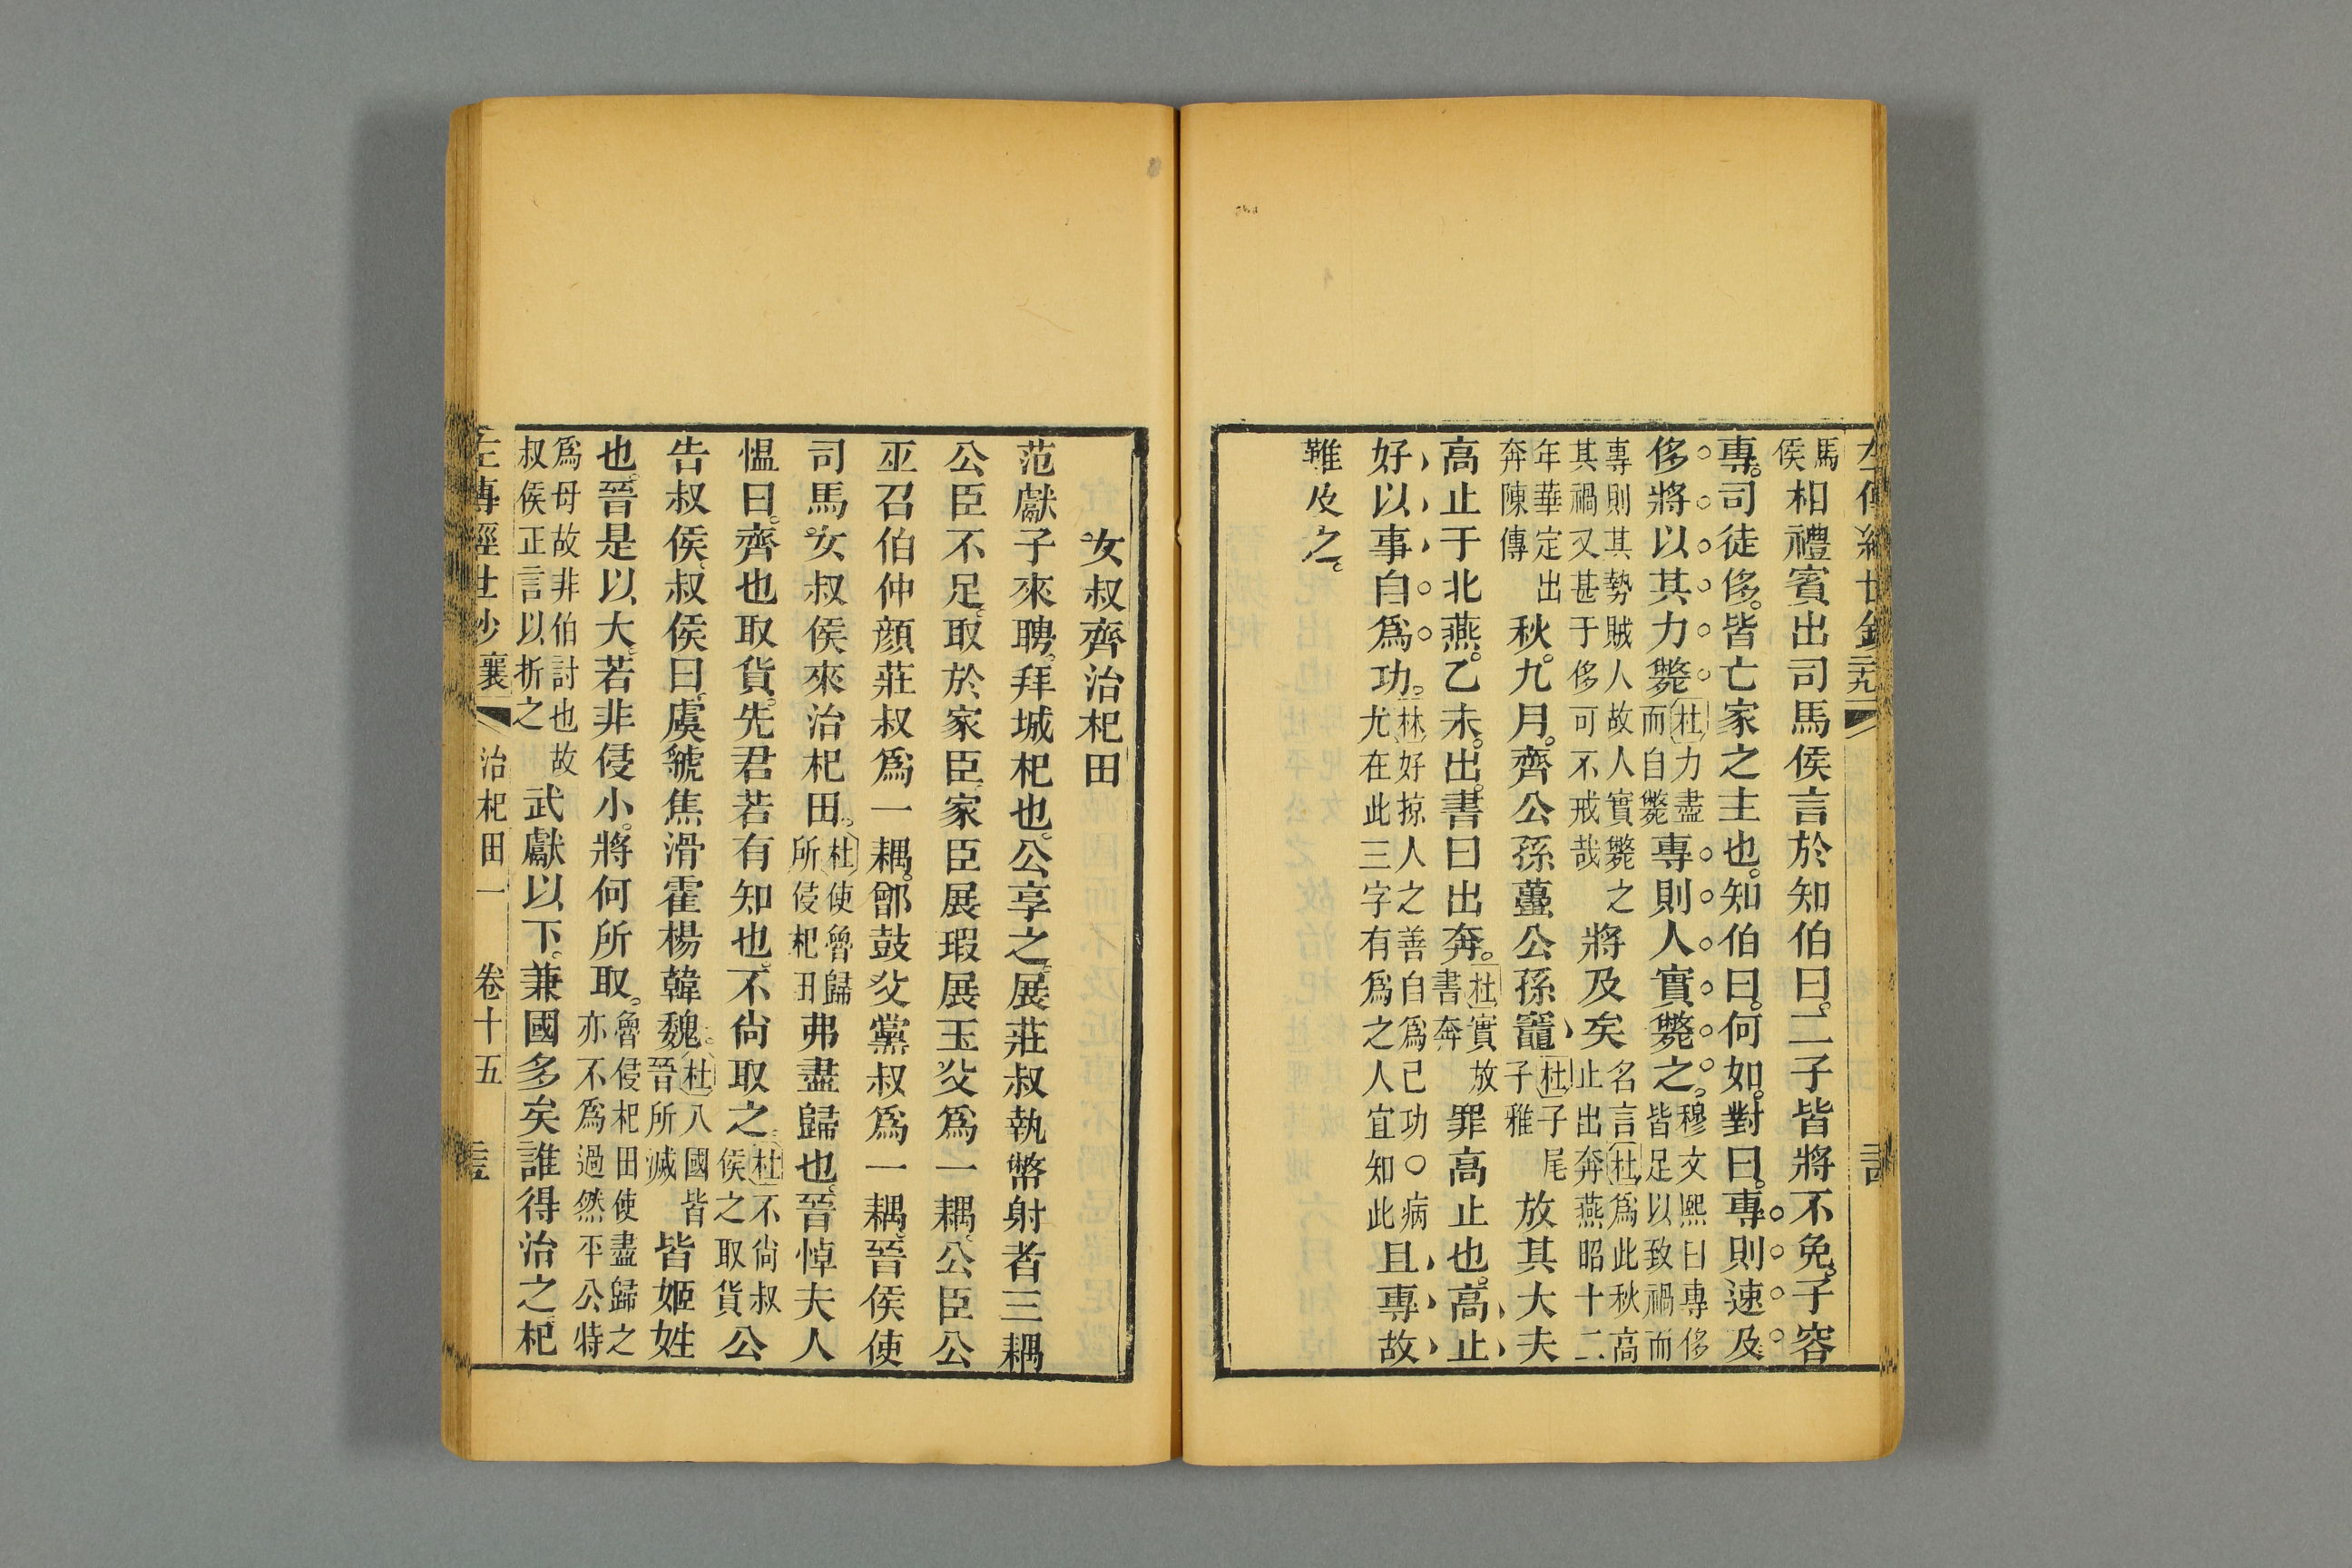 馬侯相禮賓出司馬侯言於知伯曰二子皆將不免子容
專司徒侈皆亡家之主也知伯曰何如對曰專則速及
侈將以其力斃杜力盡而自斃專則人實斃之穆文熙曰專侈皆足以致禍而
專則其勢賊人故人實斃之其禍又甚于侈可不戒哉將及矣名言杜爲此秋高止出奔燕昭十二
年華定出奔陳傳秋九月齊公孫蠆公孫竈杜子尾子雅放其大夫
高止于北燕乙未出書曰出奔杜實放書奔罪高止也高止
好以事自爲功林好掠人之善自爲己功○病尤在此三字有爲之人宜知此且專故
難及之
女叔齊治杞田
范獻子來聘拜城杞也公享之展莊叔執幣射者三耦
公臣不足取於家臣家臣展瑕展玉父爲一耦公臣公
巫召伯仲顏莊叔爲一耦鄫鼓父黨叔爲一耦晉侯使
司馬女叔侯來治杞田杜使魯歸所侵杞田弗盡歸也晉悼夫人
慍曰齊也取貨先君若有知也不尚取之杜不尚叔侯之取貨公
告叔侯叔侯曰虞虢焦滑霍楊韓魏杜八國皆晉所滅皆姬姓
也晉是以大若非侵小將何所取魯侵杞田使盡歸之亦不爲過然平公特
爲母故非伯討也故叔侯正言以折之武獻以下兼國多矣誰得治之杞
左傳經世鈔 襄 治杞田一 卷十五